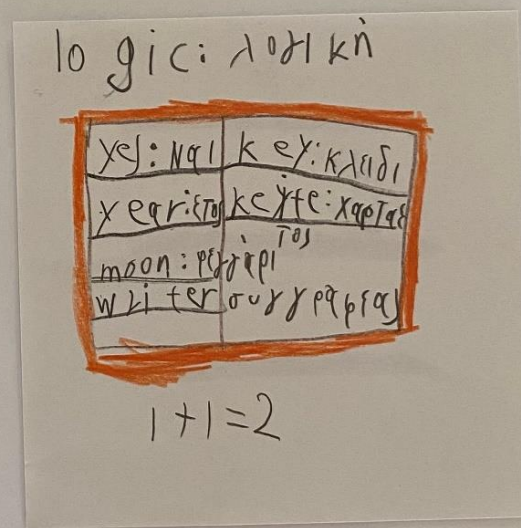 logic: λογική
yes: ναι key: κλαδι
year: ετος keyte: χαρταε
τος
moon: φεγγάρι
writer συγγραφέας
1+1=2